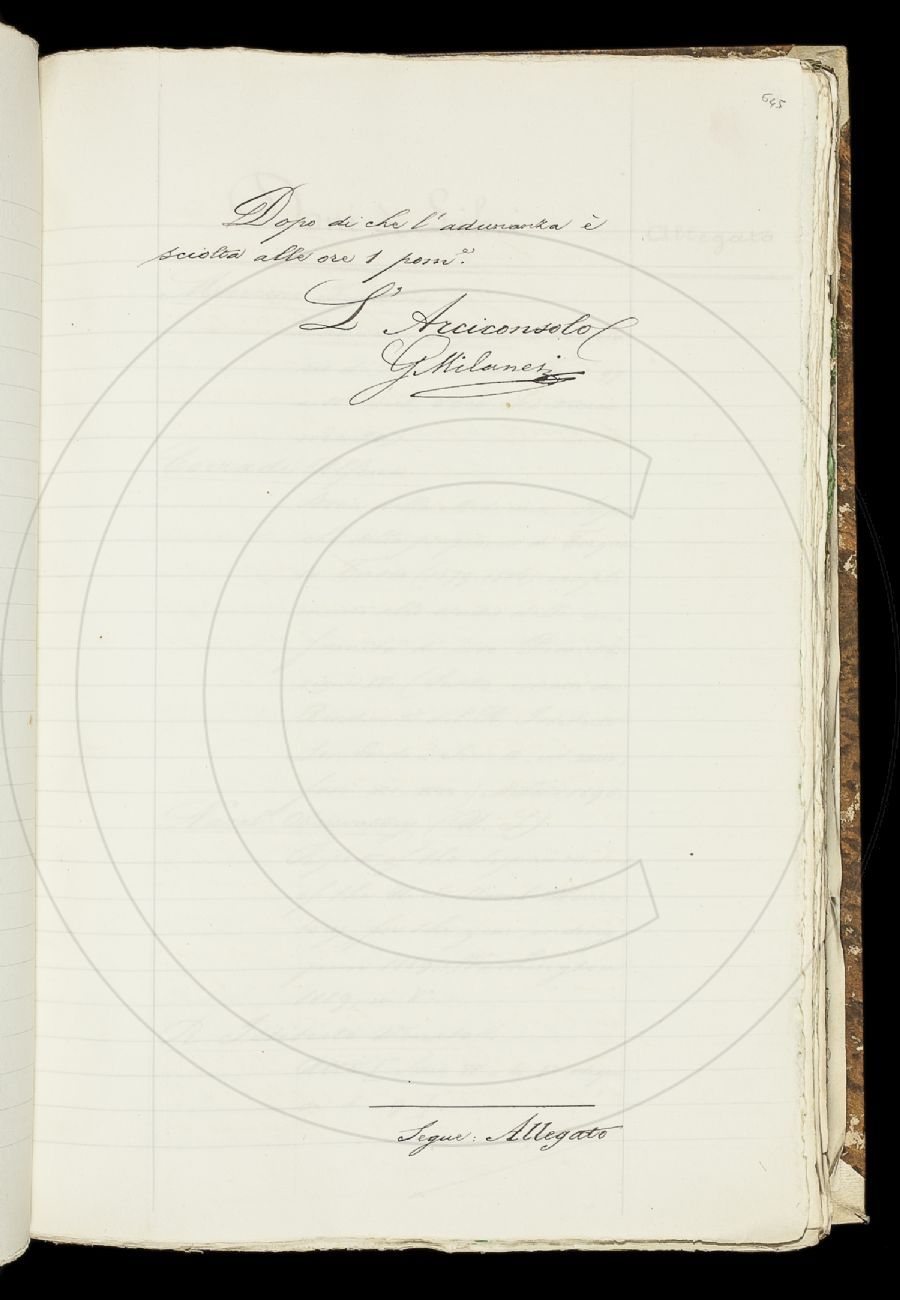 645
Dopo di che l'adunanza è
sciolta alle ore 1 pomᵉ.
L'Arciconsolo
G Milanesi
Segue: Allegato